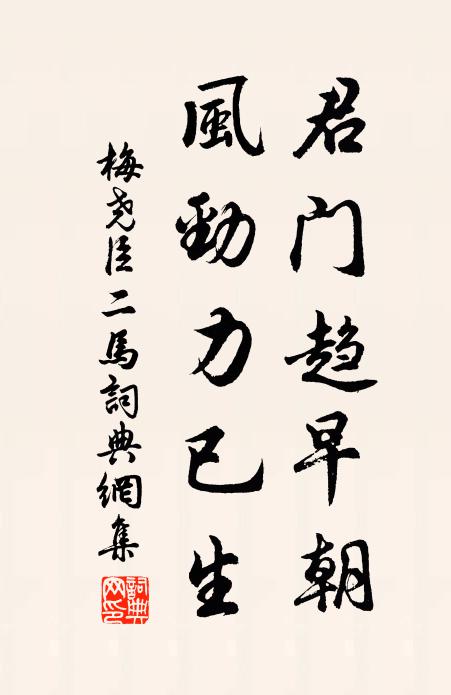 君门趋早朝
風勁力已生
梅尧臣二馬詞典網集
詞典网印